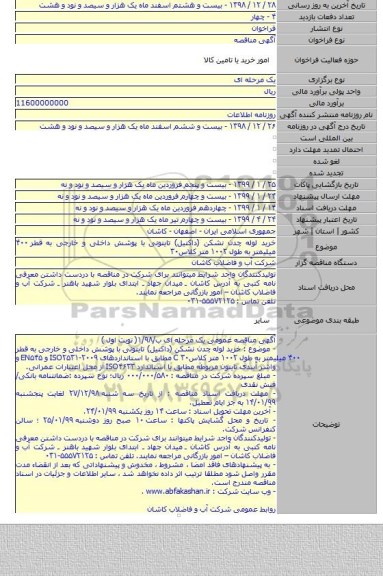 تاریخ آخرین به روز رسانی ۲۸ / ۱۲ / ۱۳۹۸ - بیست و هشتم اسفند ماه یک هزار و سیصد و نود و هشت
تعداد دفعات بازدید ۴ - چهار
نوع انتشار فراخوان
نوع فراخوان آگهی مناقصه
حوزه فعالیت فراخوان امور خرید یا تامین کالا
نوع برگزاری یک مرحله ای
واحد پولی برآورد مالی ریال
برآورد مالی 11600000000
نام روزنامه منتشر کننده آگهی روزنامه اطلاعات
تاریخ درج آگهی در روزنامه ۲۶ / ۱۲ / ۱۳۹۸ - بیست و ششم اسفند ماه یک هزار و سیصد و نود و هشت
بین المللی است
احتمال تمدید مهلت دارد
لغو شده
تجدید شده
تاریخ بازگشایی پاکات ۲۵ / ۱ / ۱۳۹۹ - بیست و پنجم فروردین ماه یک هزار و سیصد و نود و نه
مهلت ارسال پیشنهاد ۲۴ / ۱ / ۱۳۹۹ - بیست و چهارم فروردین ماه یک هزار و سیصد و نود و نه
مهلت دریافت اسناد ۱۴ / ۱ / ۱۳۹۹ - چهاردهم فروردین ماه یک هزار و سیصد و نود و نه
تاریخ اعتبار پیشنهاد ۲۴ / ۴ / ۱۳۹۹ - بیست و چهارم تیر ماه یک هزار و سیصد و نود و نه
کشور | استان | شهر جمهوری اسلامی ایران - اصفهان - کاشان
موضوع خرید لوله چدن نشکن (داکتیل) تایتونی با پوشش داخلی و خارجی به قطر ۴۰۰
میلیمتر به طول ۱۰۰۲ متر کلاس۳۰
دستگاه مناقصه گزار شرکت آب و فاضلاب کاشان
محل دریافت اسناد تولیدکنندگان واجد شرایط میتوانند برای شرکت در مناقصه با دردست داشتن معرفی
نامه کتبی به آدرس کاشان ـ میدان جهاد ـ ابتدای بلوار شهید باهنر ـ شرکت آب و
فاضلاب کاشان – امور بازرگانی مراجعه نمایند.
تلفن تماس : ۵۵۵۷۲۱۲۵-۰۳۱
طبقه بندی موضوعی سایر
توضیحات آگهی مناقصه عمومی یک مرحله ای ب/۱/۹۸( نوبت اول )
- موضوع : خرید لوله چدن نشکن (داکتیل) تایتونی با پوشش داخلی و خارجی به قطر
۴۰۰ میلیمتر به طول ۱۰۰۲ متر کلاس۳۰ C مطابق با استانداردهای ISO۲۵۳۱-۲۰۰۹ و EN۵۴۵ و
واشر آبندی تایتون مربوطه مطابق با استاندارد ISO۴۶۳۳ از محل اعتبارات عمرانی.
- مبلغ سپرده شرکت در مناقصه : ۵۸۰/۰۰۰/۰۰۰ ریال- نوع سپرده :ضمانتنامه بانکی/
فیش نقدی
- مهلت دریافت اسناد مناقصه : از تاریخ سه شنبه ۲۷/۱۲/۹۸ لغایت پنجشنبه
۱۴/۰۱/۹۹ به جز ایام تعطیل.
- آخرین مهلت تحویل اسناد : ساعت ۱۴ روز یکشنبه ۲۴/۰۱/۹۹.
- تاریخ و محل گشایش پاکتها : ساعت ۱۰ صبح روز دوشنبه ۲۵/۰۱/۹۹ ؛ سالن
کنفرانس شرکت.
- تولیدکنندگان واجد شرایط میتوانند برای شرکت در مناقصه با دردست داشتن معرفی
نامه کتبی به آدرس کاشان ـ میدان جهاد ـ ابتدای بلوار شهید باهنر ـ شرکت آب و
فاضلاب کاشان – امور بازرگانی مراجعه نمایند. تلفن تماس : ۵۵۵۷۲۱۲۵-۰۳۱
- به پیشنهادهای فاقد امضا ، مشروط ، مخدوش و پیشنهاداتی که بعد از انقضاء مدت
مقرر واصل شود مطلقا ترتیب اثر داده نخواهد شد . سایر اطلاعات و جزئیات در اسناد
مناقصه مندرج است.
- وب سایت شرکت : www.abfakashan.ir .
روابط عمومی شرکت آب و فاضلاب کاشان
ParsNamadData